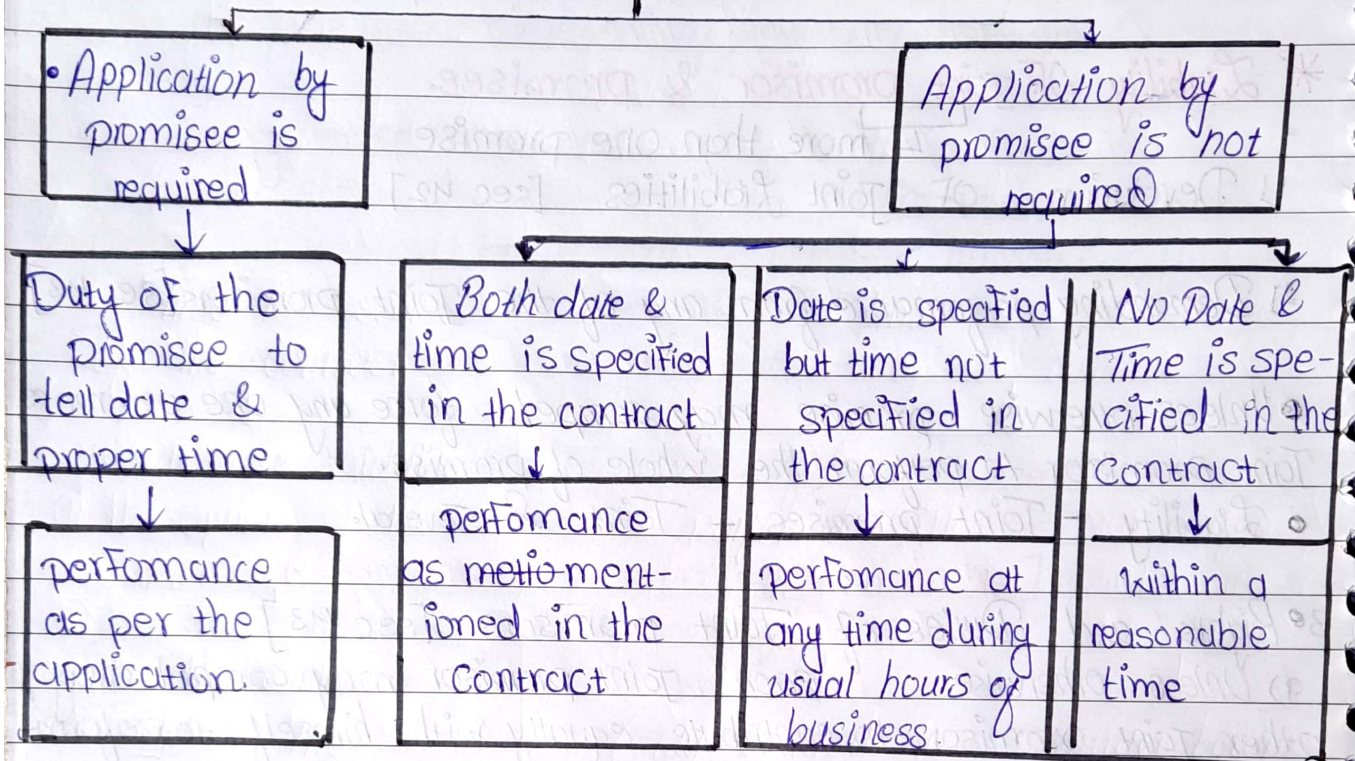 • Application by
promisee is
required
Application by
promisee is not
required
Duty of the
promisee to
tell date &
proper time
perfomance
as per the
application.
Both date &
time is specified
in the contract
perfomance
as metio ment-
ioned in the
contract
Date is specified
but time not
specified in
the contract
perfomance at
any time during
usual hours of
business.
No Date &
Time is spe-
cified in the
Contract
within a
reasonable
time